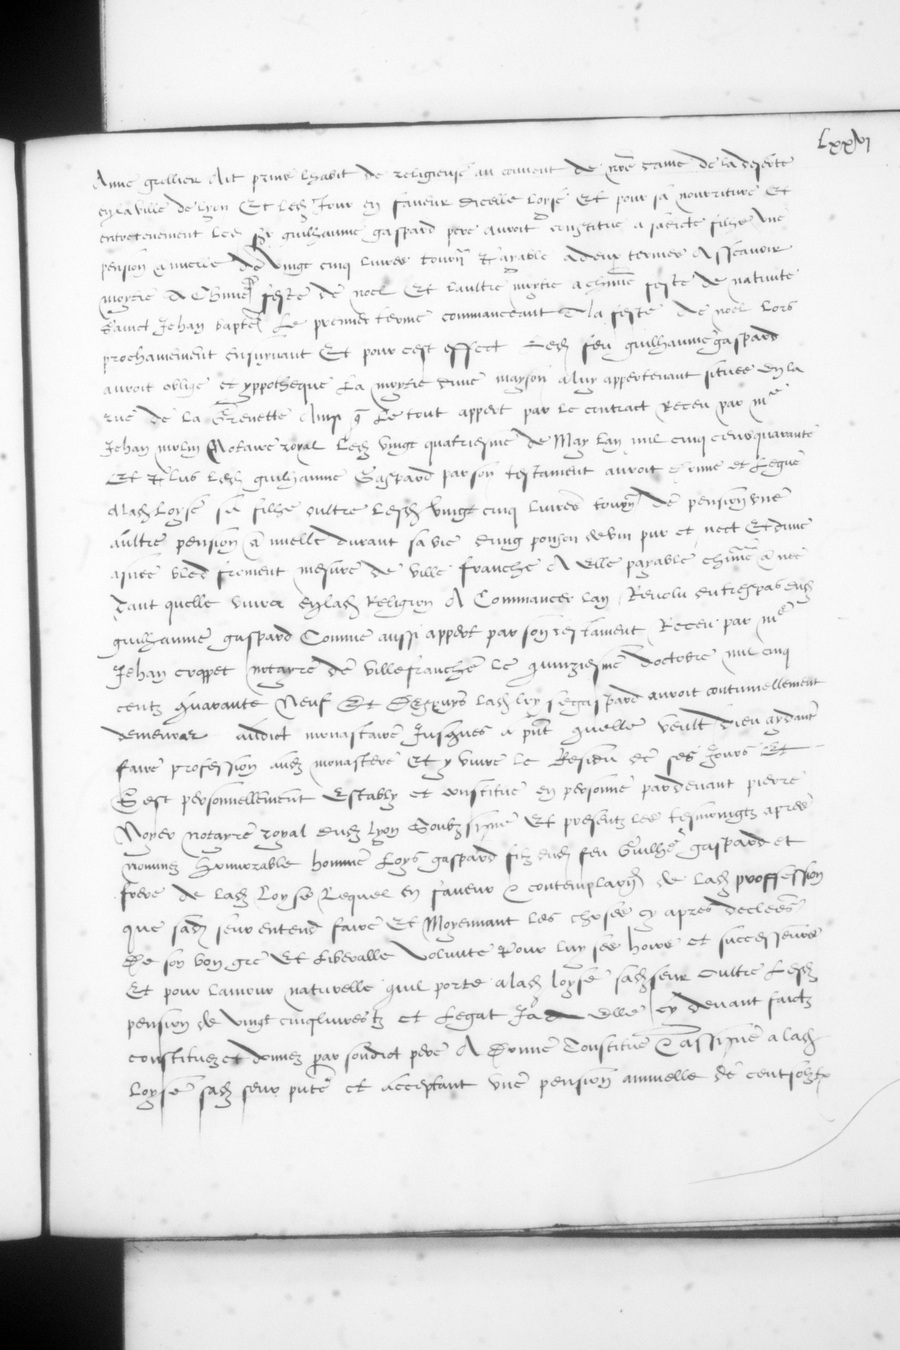 Lxxvi
Anne grollier Ait prins lhabit de religieuse au couvent de nre dame de la deserte
en la ville de lyon Et led Jour en faveur dicelle loyse Et pour sa nourriture Et
entretenement led Sr guilhaume gaspard pere auroit constitue a sadicte filhe une
pension annuelle de vingt cinq livres tourn payable a deux termes Asscavoir
moytie A chune feste de noel Et laultre moytie a chune feste de nativite
Sainct Jehan bapte Le premier terme commanceant A la feste de noel lors
prochainement ensuyvant Et pour cest effect Led feu guilhaume gaspard
auroit oblige et yppotheque La moytie dune mayson a luy appertenant situee en la
rue de la Grenette Ainsi q Le tout appert par le contract Receu par me
Jehan molin Notaire royal Led vingt quatriesme de May lan mil cinq cens quarante
Et Plus led guilhaume Gaspard par son testament auroit donne et legue
a lad loyse sa filhe oultre lesd vingt cinq livres tourn de pension une
aultre pension annuelle durant sa vie dung ponson de vin pur et nect Et dune
asnee bled froment mesure de ville franche A Elle payable chune annee
Tant quelle vivra en lad Religion A Commancer lan Revolu du trespas dud
guilhaume gaspard Comme aussi appert par son testament Receu par me
Jehan croppet notayre de villefranche le quinziesme doctobre mil cinq
centz quarante Neuf Et Despuys lad loyse gaspard auroit continuellement
demeurer audict monastaire Jusques a pnt quelle veult dieu aydant
faire profession aud monastere Et y vivre le Residu de ses Jours Et
Sest personnellement Estably et constitue en personne pardevant pierre
Noyer notayre royal dud lyon Soubzsigne Et presentz les tesmoingtz apres
nommez honnorable homme Loys gaspard filz dud feu Guilhe gaspard et
frere de lad Loyse Lequel en faveur & contemplaon de lad proffession
que sad seur entend faire Et Moyennant les choses cy apres declerees
De son bon gre Et Liberalle volunte Pour luy ses hoirs et successeurs
Et pour lamour naturelle quil porte a lad loyse sad seur Oultre Lesd
pension de vingt cinq livres tz et legat Ja A Elle cy devant faictz
constituez et donnez par sondict pere A Donne Constitue & assigne a lad
Loyse sad seur pnte et acceptant une pension annuelle de